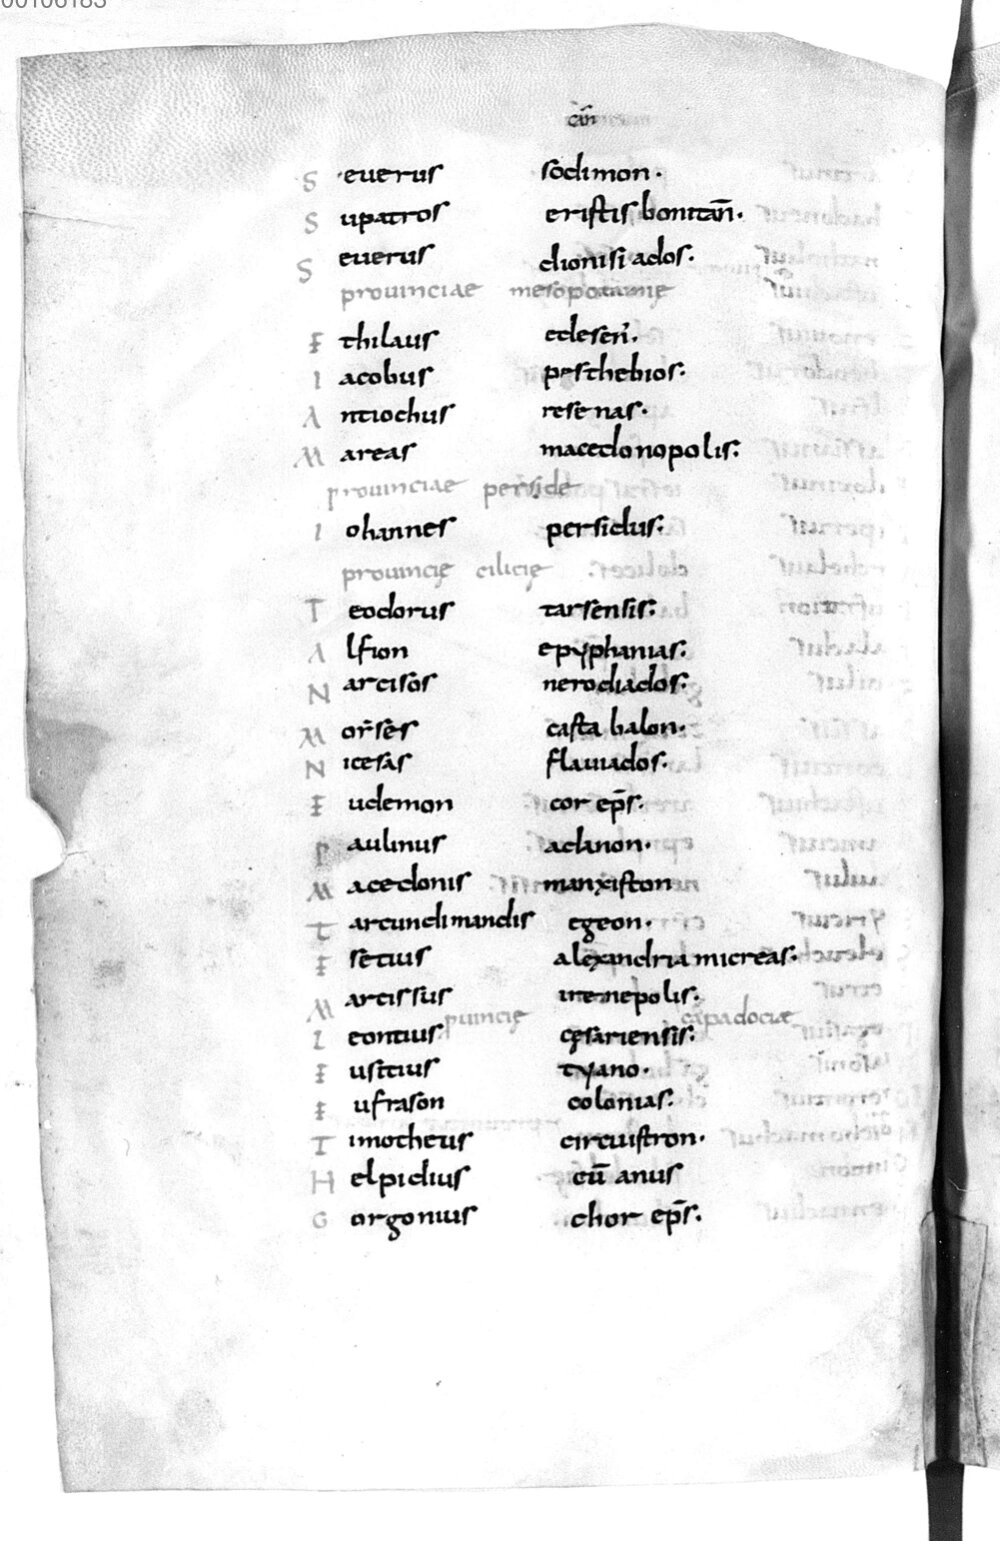 00106183
cañ
Seuerus sodimon.
Supatros eristis bonitañ.
Seuerus dionisi ados.
prouinciae mesopotamię
Ethilaus edeseñ.
Iacobus pesthebios.
Antiochus rese nas.
Mareas macedonopolis:
prouinciae perside
Iohannes persidus:
prouincię cilicię
Teodorus tarsensis:
Alfion epyphanias:
Narcisos nerodiados:
Morses casta balon.
Nicesas flauiados.
Eudemon cor ep̄s.
Paulinus adanon.
Macedonis manxiston
Tarcundimandis egeon.
Esetius alexandria micreas:
Marcissus irenepolis.
puincię capadociæ
Leontius cęsariensis:
Eustcius tyano.
Eufrason colonias:
Timotheus circuistron.
Helpidius cū anus
Gorgonius chor ep̄s.